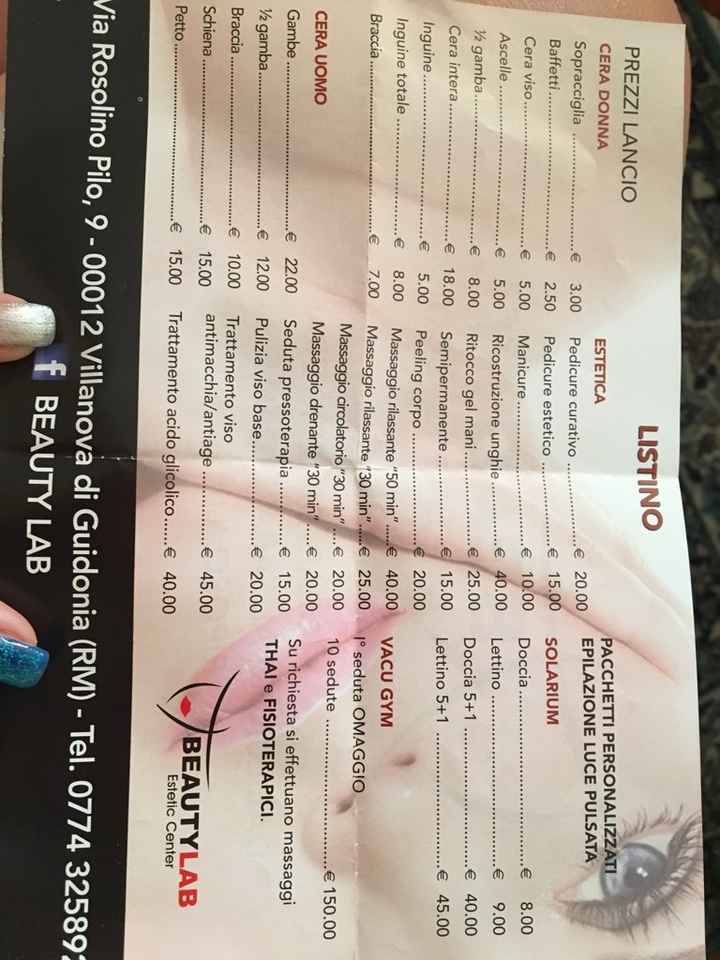 LISTINO
PREZZI LANCIO
CERA DONNA
Sopracciglia € 3.00
Baffetti € 2.50
Cera viso € 5.00
Ascelle € 5.00
½ gamba € 8.00
Cera intera € 18.00
Inguine € 5.00
Inguine totale € 8.00
Braccia € 7.00
CERA UOMO
Gambe € 22.00
½ gamba € 12.00
Braccia € 10.00
Schiena € 15.00
Petto € 15.00
ESTETICA
Pedicure curativo € 20.00
Pedicure estetico € 15.00
Manicure € 10.00
Ricostruzione unghie € 40.00
Ritocco gel mani € 25.00
Semipermanente € 15.00
Peeling corpo € 20.00
Massaggio rilassante "50 min" € 40.00
Massaggio rilassante "30 min" € 25.00
Massaggio circolatorio "30 min" € 20.00
Massaggio drenante "30 min" € 20.00
Seduta pressoterapia € 15.00
Pulizia viso base € 20.00
Trattamento viso
antimacchia/antiage € 45.00
Trattamento acido glicolico € 40.00
PACCHETTI PERSONALIZZATI
EPILAZIONE LUCE PULSATA
SOLARIUM
Doccia € 8.00
Lettino € 9.00
Doccia 5+1 € 40.00
Lettino 5+1 € 45.00
VACU GYM
I° seduta OMAGGIO
10 sedute € 150.00
Su richiesta si effettuano massaggi
THAI e FISIOTERAPICI.
BEAUTYLAB
Estetic Center
Via Rosolino Pilo, 9 - 00012 Villanova di Guidonia (RM) - Tel. 0774 325892
f BEAUTY LAB